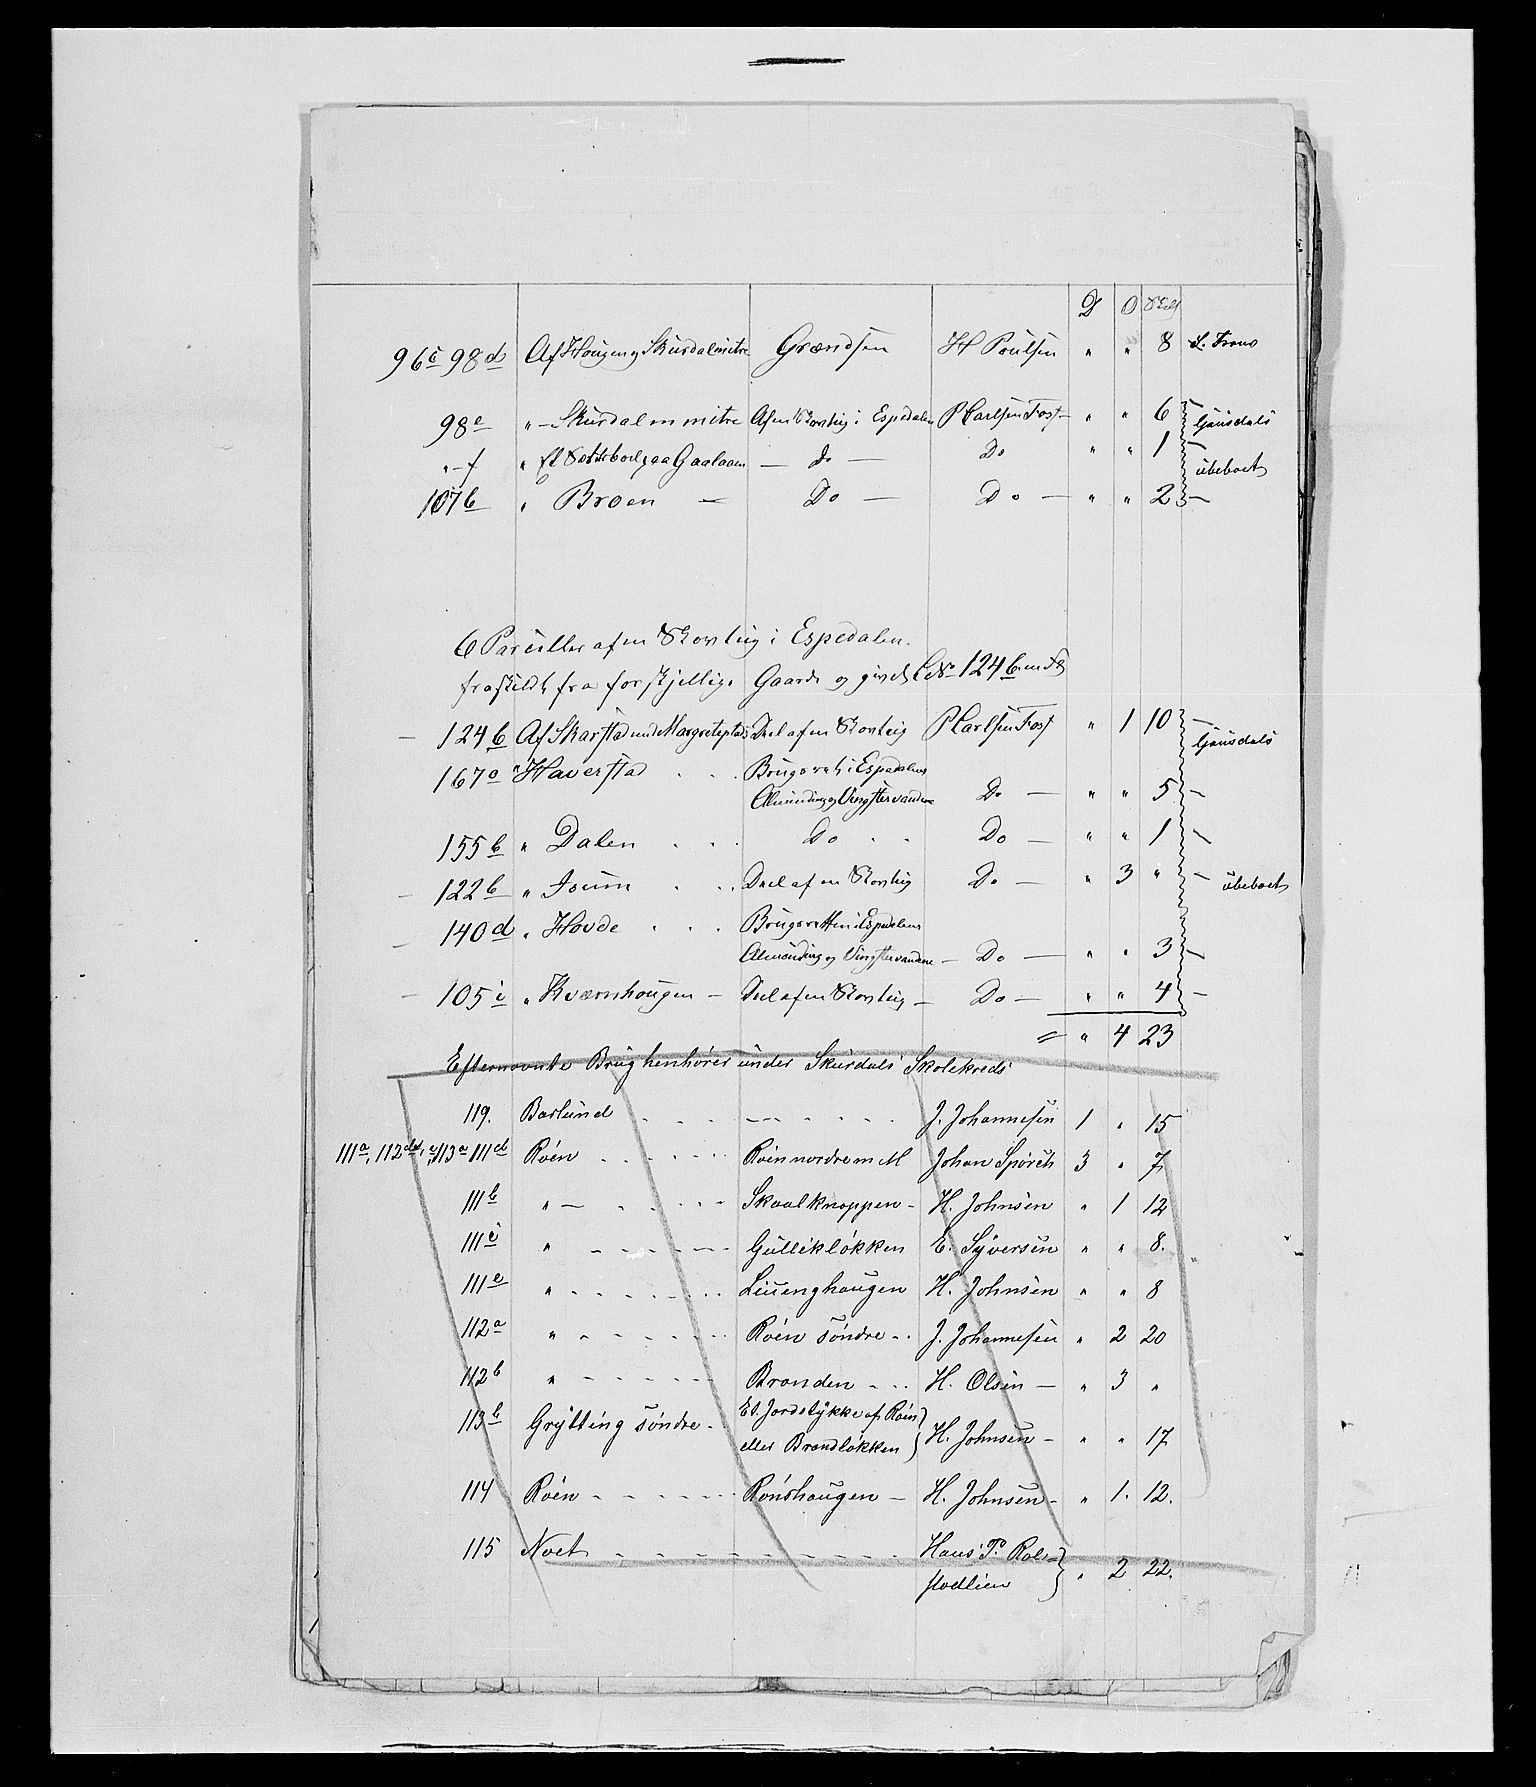 D O Skil
96c 98d Af Hougen og Skurdal mitre Grændsen H Poulsen " " 8 S. Frons
98e " – Skurdal m mitre Af en Skovteig i Espedalen P Carlsen Fosf – " " 6 Gausdals
" – f " Et Sæterboel paa Gaalaaen – Do – Do " " 1 –
ubeboet
107b " Broen – Do – Do – " " 2 –
6 Parceller af en Skovteig i Espedalen
fraskildt fra forskjellige Gaarde og givet L No 124b
– 124b Af Skarstad Deel af en Skovteig P Carlsen Fosf " 1 10 –
Gausdals
167a " Haverstad . . . Brugsret i Espedalens
Alminding og Vingstervandene Do – " " 5 –
155b " Dalen . . . Do . . Do – " " 1 –
– 122b " Isum . . . Deel af en Skovteig Do – " 3 " – ubeboet
– 140d " Hovde . . . Brugsretten i Espedalens
Alminding og Vingstervandene – Do – " " 3 –
– 105i " Kværnhougen – Deel af en Skovteig – Do – " " 4 –
= " 4 23
Efternævnte Brug henhører under Skurdals Skolekreds
119. Baslund . . . – – . . . . J. Johannesen 1 " 15
111a, 112d, 113a 111d Roen . . . . . . Roen nordre m M Johan Spørch 3 " 7
111b " – . . . . . Skaalknappen – H. Johnsen " 1 12
111c " – – – – – Gullekløkken E. Syversen " " 8.
111e " . . . . . . Liuenghaugen H. Johnsen " " 8
112a " – – – – – Roen søndre – . J. Johannesen " 2 20
112b " – – – – – Branden – . . H. Olsen – " 3 "
113b Grytting søndre – . Et Jordstykke af Roen
eller Brandløkken } H. Johnsen – " " 17
114 Roen – – – – – Ronshaugen – H. Johnsen – " 1. 12.
115 Noet – – – – – – – – Hans P. Role=
stadlien } " 2 22.